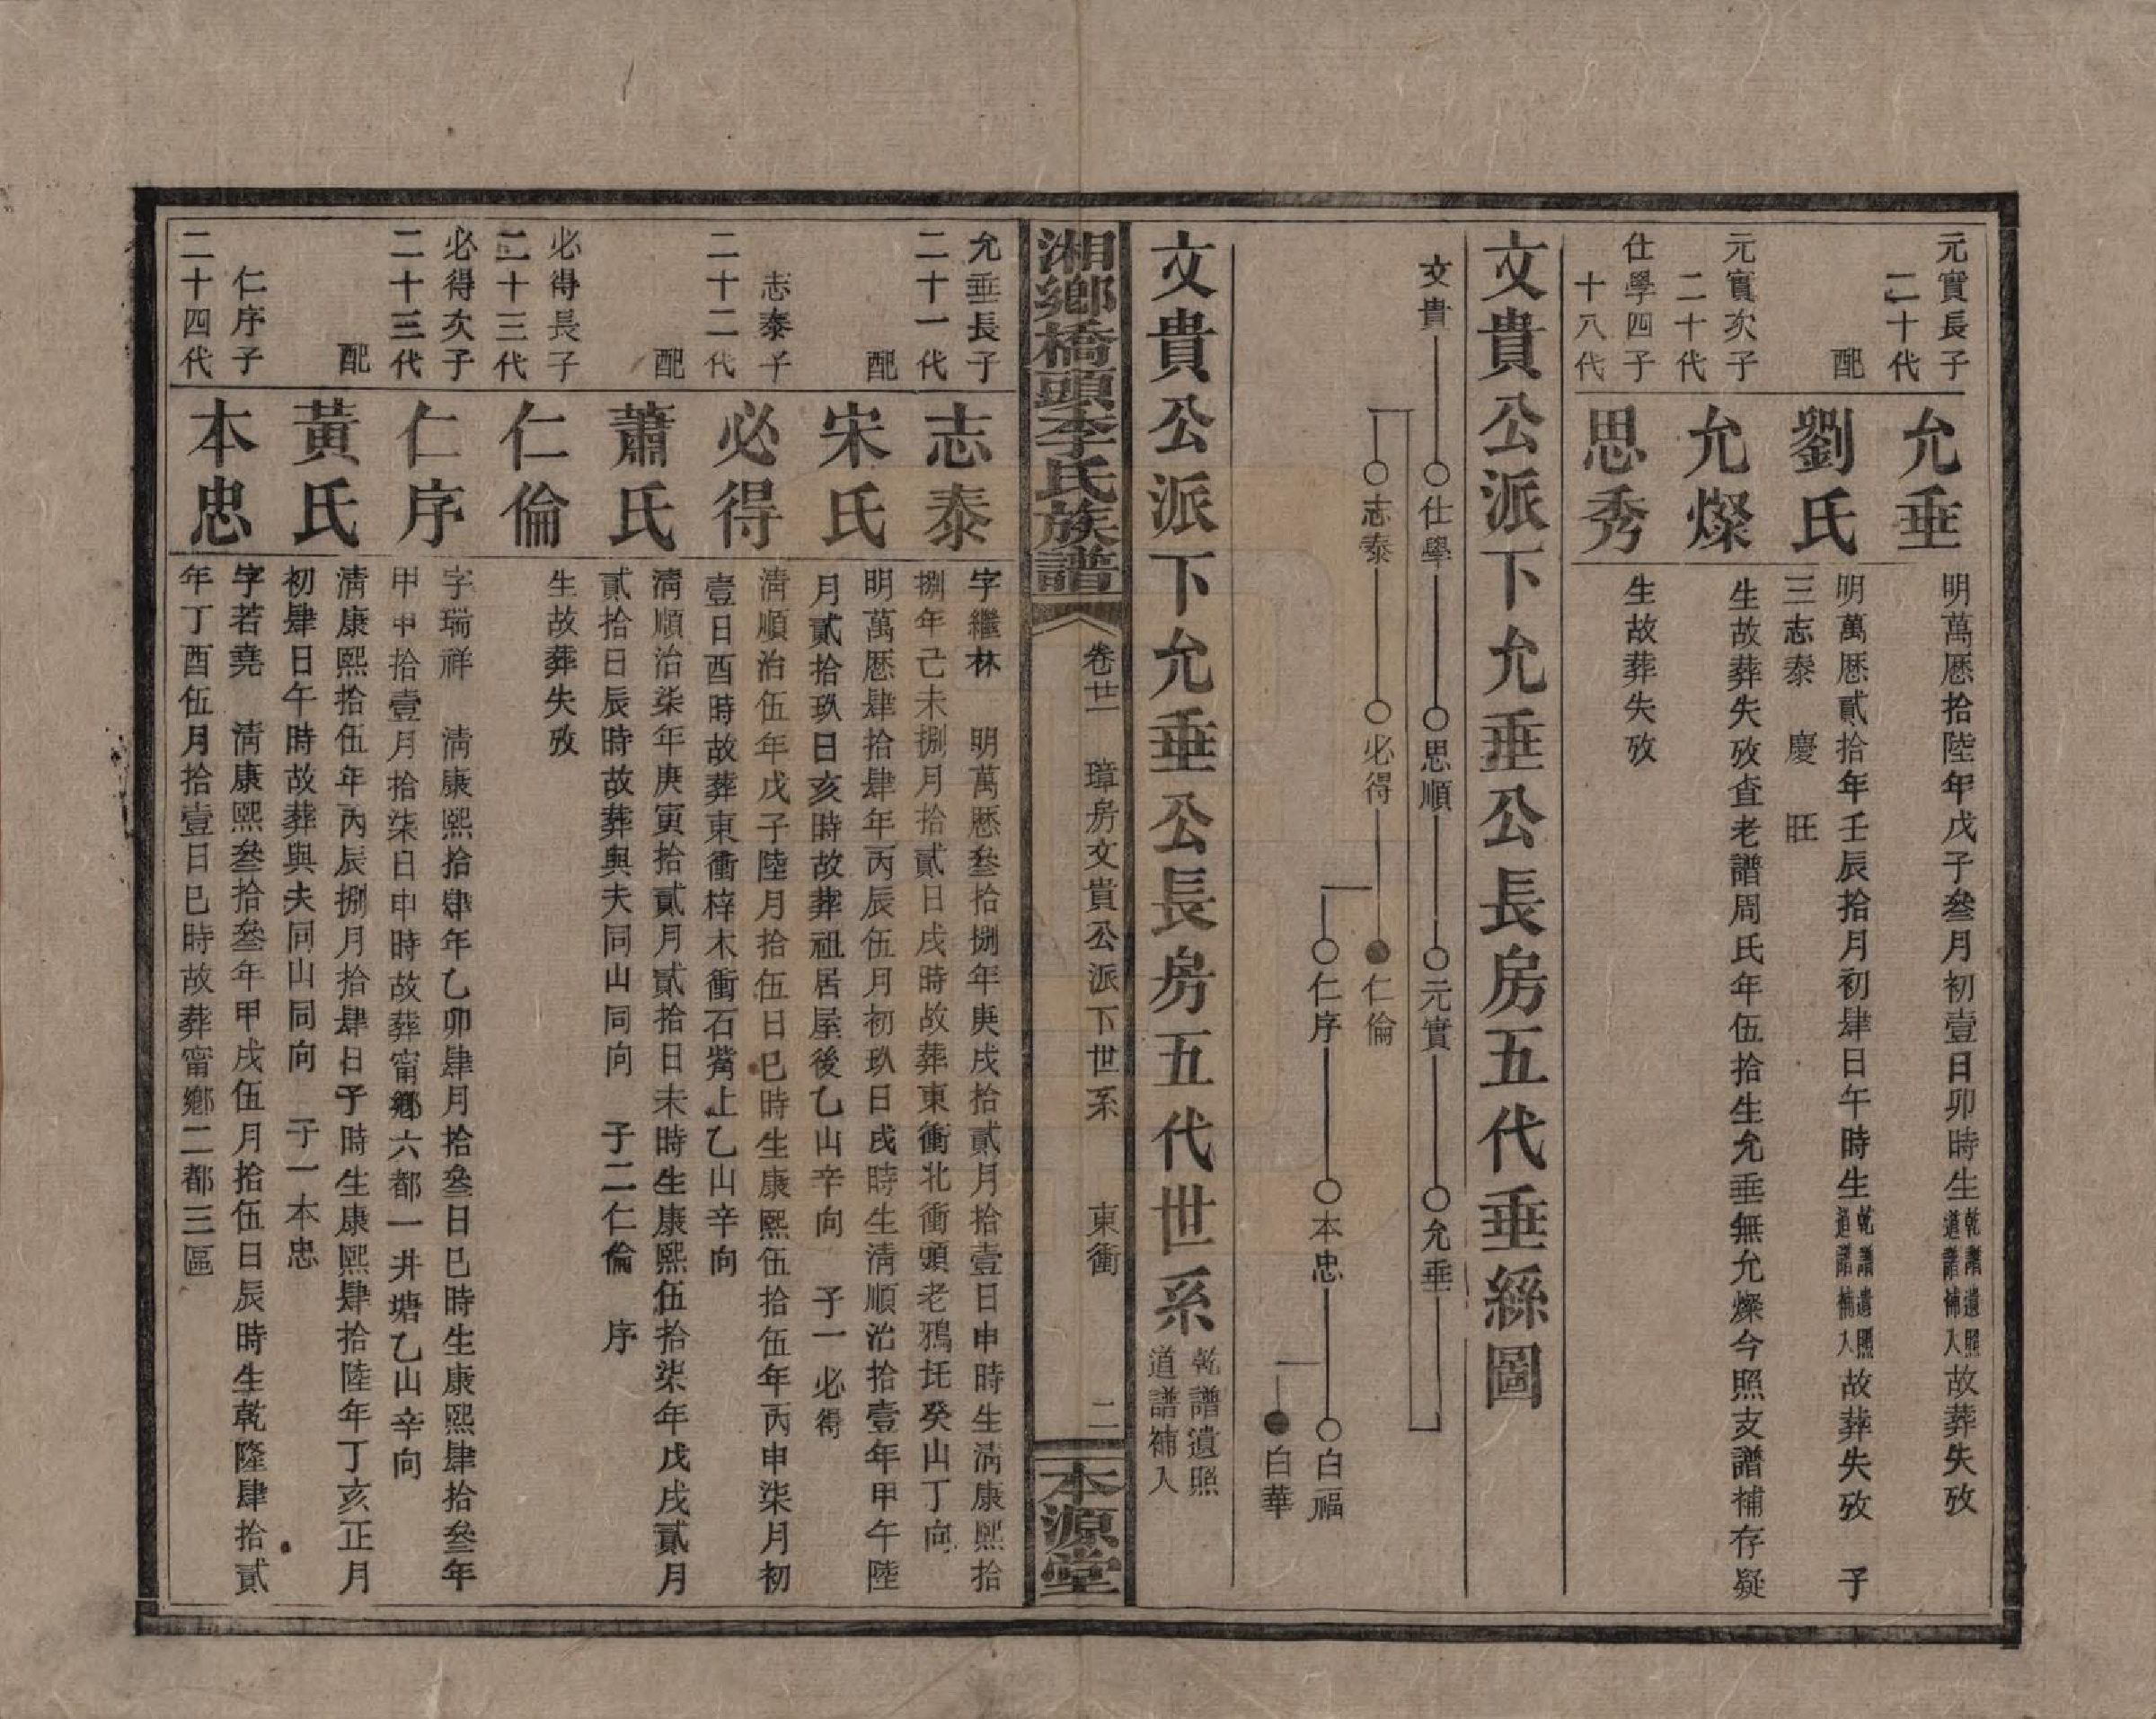 元實長子
二十代
允垂
明萬厯拾陸年戊子叄月初壹日卯時生乾譜遺照道譜補入故葬失攷
配
劉氏
明萬厯貳拾年壬辰拾月初肆日午時生乾譜遺照道譜補入故葬失攷　子
三志泰　慶　旺
元實次子
二十代
允燦
生故葬失攷查老譜周氏年伍拾生允垂無允燦今照支譜補存疑
仕學四子
十八代
思秀
生故葬失攷
文貴公派下允垂公長房五代垂絲圖
文貴
仕學
思順
元實
允垂
志泰
必得
仁倫
仁序
本忠
白福
白華
文貴公派下允垂公長房五代世系乾譜遺照道譜補入
湘鄉橋頭李氏族譜
卷廿一　璋房文貴公派下世系　東衝　二
本源堂
允垂長子
二十一代
志泰
字繼林　明萬厯叄拾捌年庚戌拾貳月拾壹日申時生淸康熙拾
捌年己未捌月拾貳日戌時故葬東衝北衝頭老鴉圫癸山丁向
配
宋氏
明萬厯肆拾肆年丙辰伍月初玖日戌時生淸順治拾壹年甲午陸
月貳拾玖日亥時故葬祖居屋後乙山辛向　子一必得
志泰子
二十二代
必得
淸順治伍年戊子陸月拾伍日巳時生康熙伍拾伍年丙申柒月初
壹日酉時故葬東衝梓木衝石觜上乙山辛向
配
蕭氏
淸順治柒年庚寅拾貳月貳拾日未時生康熙伍拾柒年戊戌貳月
貳拾日辰時故葬與夫同山同向　子二仁倫　序
必得長子
二十三代
仁倫
生故葬失攷
必得次子
二十三代
仁序
字瑞祥　淸康熙拾肆年乙卯肆月拾叄日巳時生康熙肆拾叄年
甲申拾壹月拾柒日申時故葬甯鄉六都一井塘乙山辛向
配
黃氏
淸康熙拾伍年丙辰捌月拾肆日子時生康熙肆拾陸年丁亥正月
初肆日午時故葬與夫同山同向　子一本忠
仁序子
二十四代
本忠
字若堯　淸康熙叄拾叄年甲戌伍月拾伍日辰時生乾隆肆拾貳
年丁酉伍月拾壹日巳時故葬甯鄉二都三區